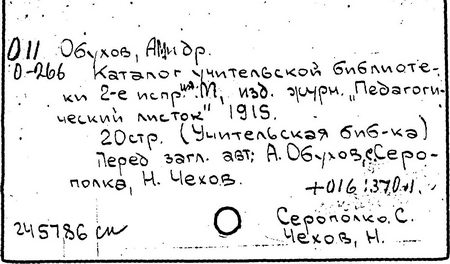 011 Обухов, А. и др.
0-266 Каталог учительской библиоте-
ки 2-е испр. изд. М, изд. журн. „Педагоги-
ческий листок" 1915.
20стр. (Учительская биб-ка)
Перед загл. авт; А. Обухов, С. Серо-
полка, Н. Чехов.
+016:370.1.
245786 см
Серополко. С.
Чехов, Н.